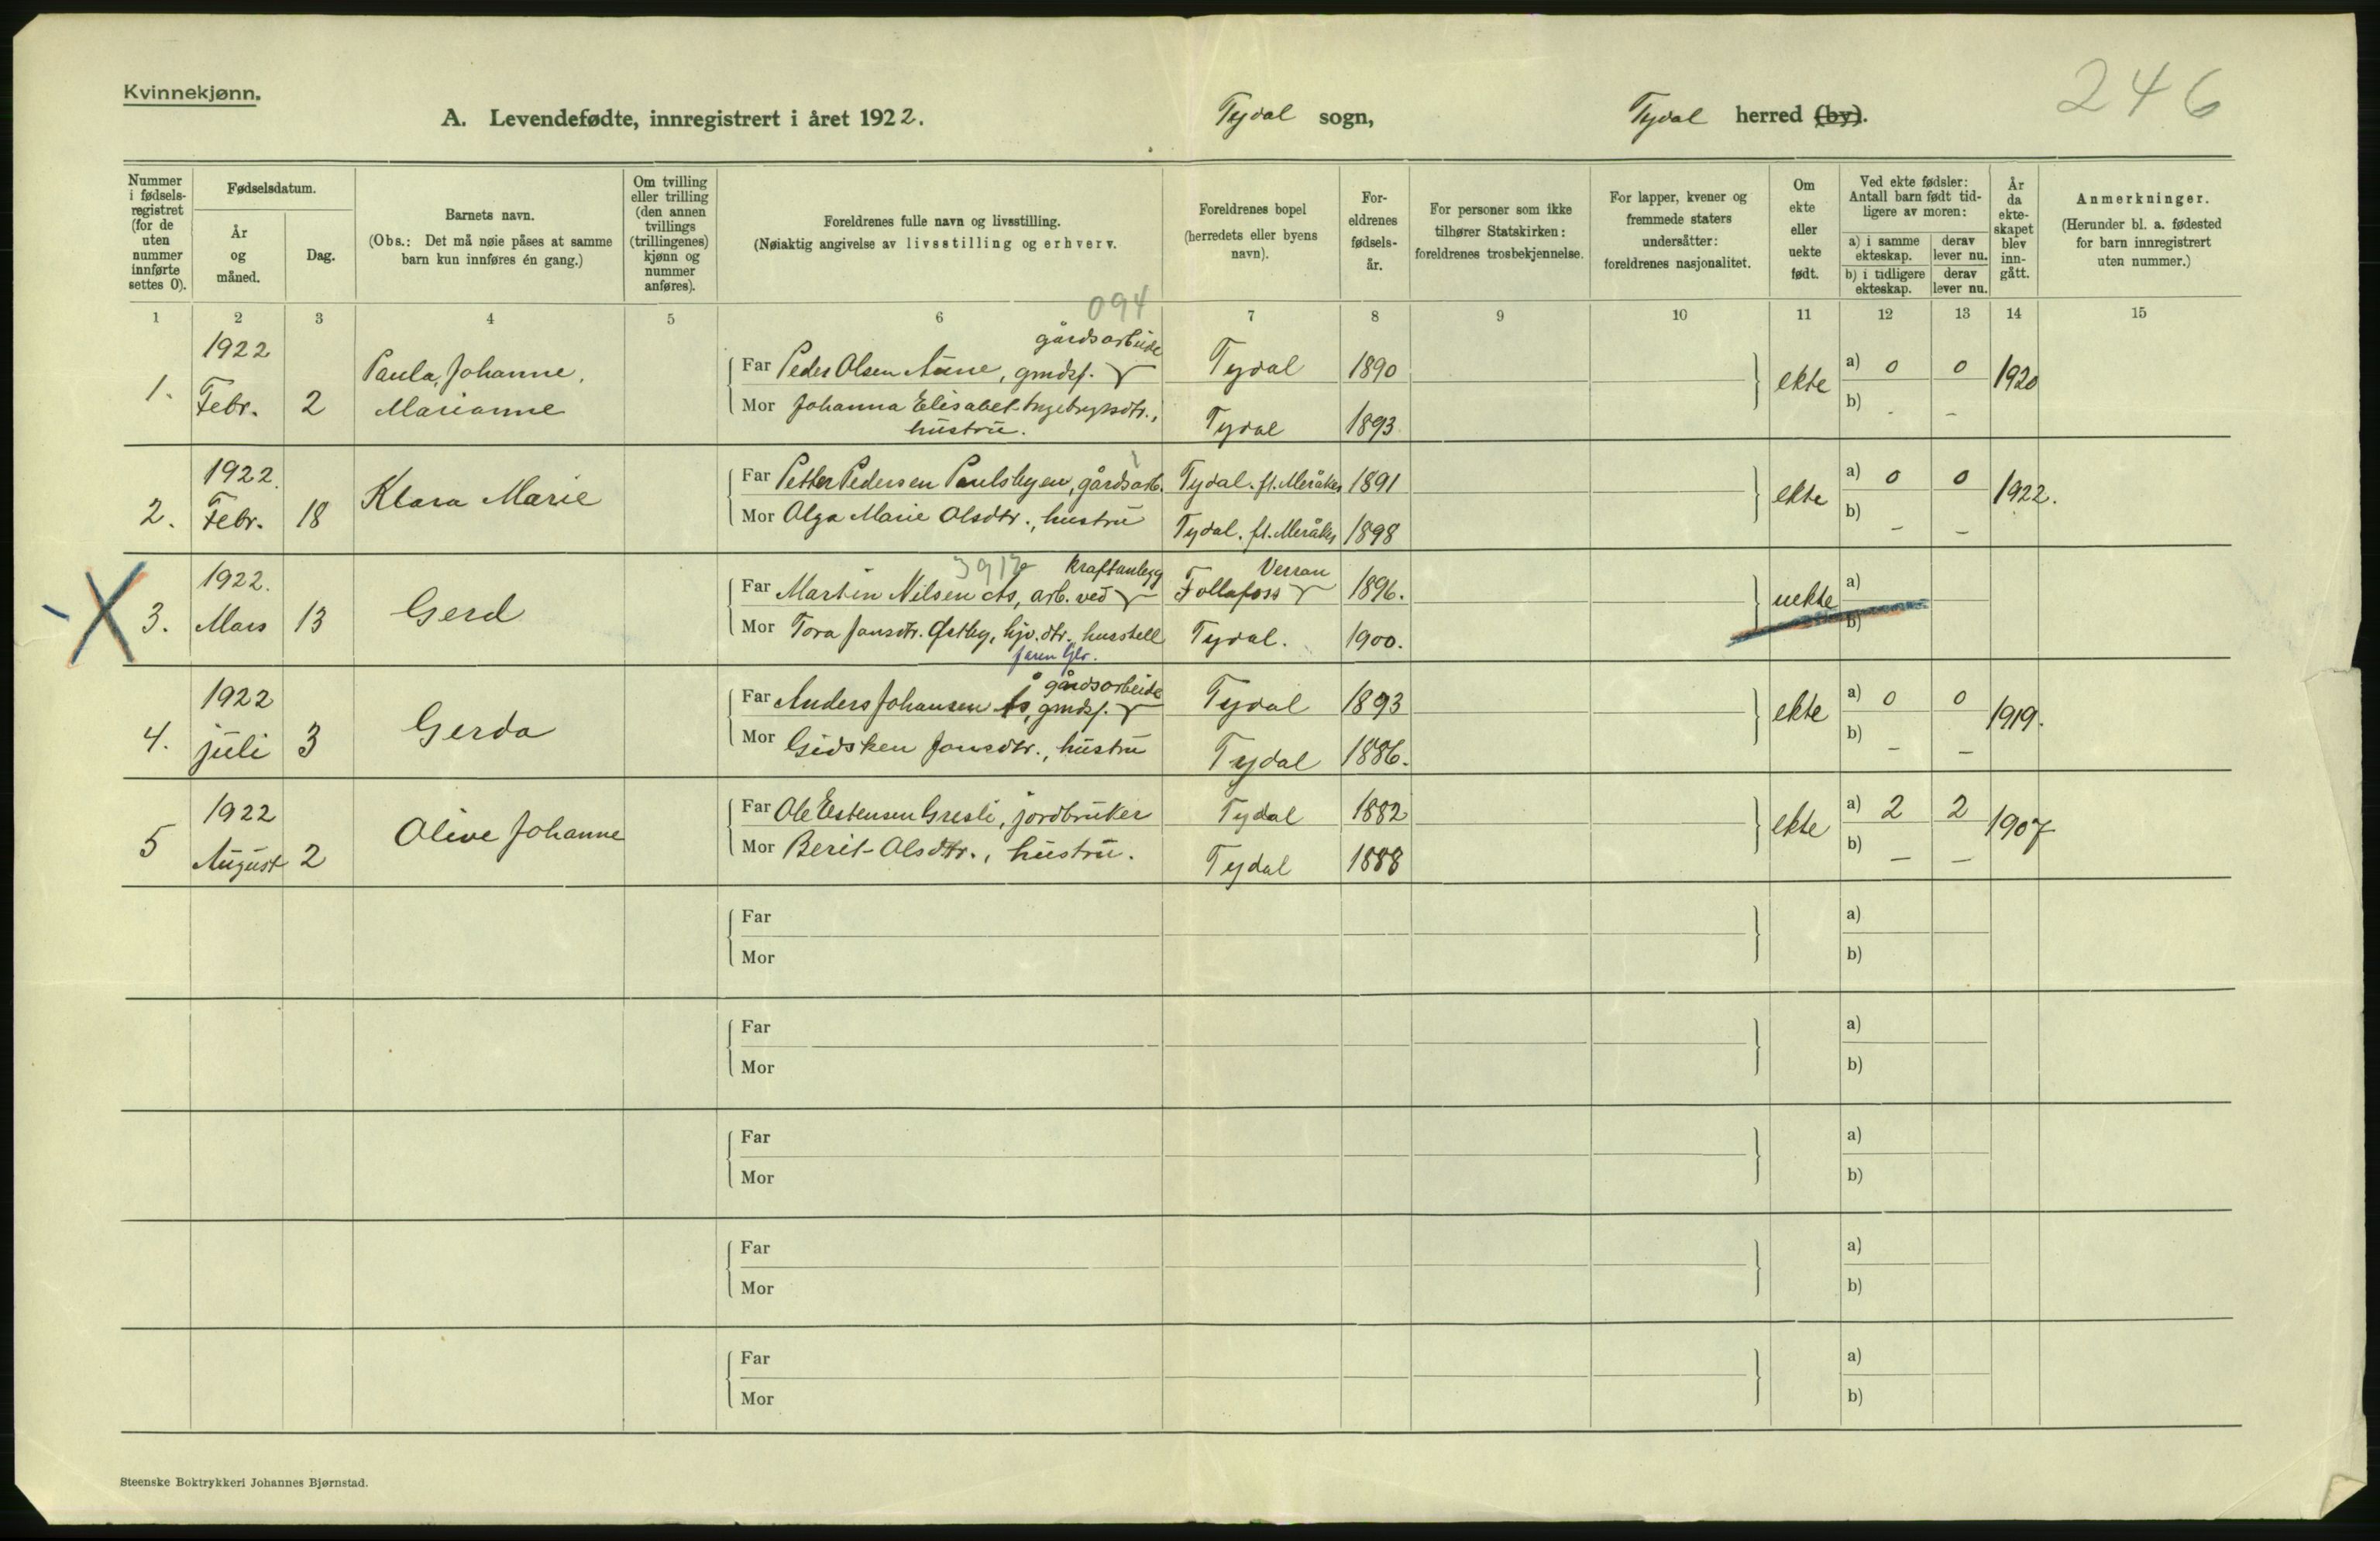 Kvinnekjønn.
246
A. Levendefødte, innregistrert i året 1922. Tydal sogn, Tydal herred (by).
Nummer i fødselsregistret (for de uten nummer innførte settes 0).
Fødselsdatum.
År og måned.
Dag.
Barnets navn.
(Obs.: Det må nøie påses at samme barn kun innføres én gang.)
Om tvilling eller trilling (den annen tvillings (trillingenes) kjønn og nummer anføres).
Foreldrenes fulle navn og livsstilling.
(Nøiaktig angivelse av livsstilling og erhverv.
Foreldrenes bopel (herredets eller byens navn).
Foreldrenes fødselsår.
For personer som ikke tilhører Statskirken: foreldrenes trosbekjennelse.
For lapper, kvener og fremmede staters undersåtter: foreldrenes nasjonalitet.
Om ekte eller uekte født.
Ved ekte fødsler: Antall barn født tidligere av moren:
a) i samme ekteskap. derav lever nu.
b) i tidligere ekteskap. derav lever nu.
År da ekteskapet blev inngått.
Anmerkninger.
(Herunder bl. a. fødested for barn innregistrert uten nummer.)
094
1 2 3 4 5 6 7 8 9 10 11 12 13 14 15
1922 gårdsarbeide
Paula Johanne, Far Peder Olsen Aune, gmdsf. Tydal 1890 a) 0 0
1. Febr. 2 Marianne Mor Johanna Elisabet Ingebrigtsdtr., ekte 1920
hustru. Tydal 1893 b) - -
1922. Far Petter Pedersen Paulsbyen, gårdsarb. Tydal. fl. Meråker 1891 a) 0 0
2. Febr. 18 Klara Marie ekte 1922.
Mor Olga Marie Olsdtr., hustru Tydal. fl. Meråker 1898 b) - -
kraftanlegg Verran
1922. Far Martin Nilsen Ås, arb. ved Follafoss 1896. a)
3. Mars 13 Gerd uekte
Mor Tora Jansdtr. Østby, hjv. dtr. husstell Tydal. 1900. b)
1922 gårdsarbeide
Far Anders Johansen Ås, gmdsf. Tydal 1893 a) 0 0
4. juli 3 Gerda ekte 1919.
Mor Gidsken Jonsdtr., hustru Tydal 1886. b) - -
1922 Far Ole Estensen Gresli, jordbruker Tydal 1882 a) 2 2
5 August 2 Olive Johanne ekte 1907
Mor Berit Olsdtr., hustru. Tydal 1888 b) - -
Far a)
Mor b)
Far a)
Mor b)
Far a)
Mor b)
Far a)
Mor b)
Far a)
Mor b)
Steenske Boktrykkeri Johannes Bjørnstad.